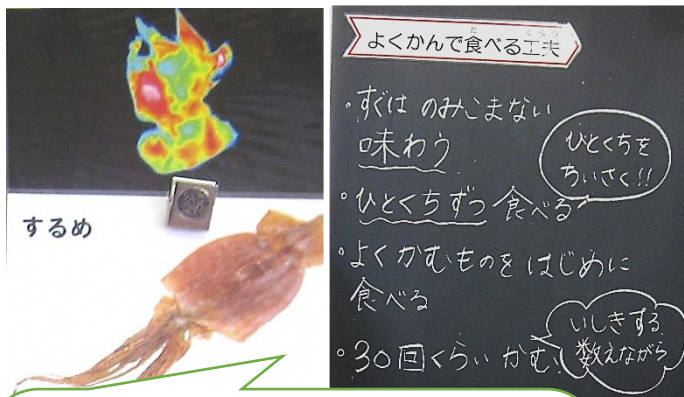 するめ
よくかんで食べる工夫
・すぐは のみこまない
味わう
ひとくちを
ちいさく!!
・ひとくちずつ 食べる
・よくかむものを はじめに
食べる
・30回くらい かむ
いしきする
数えながら